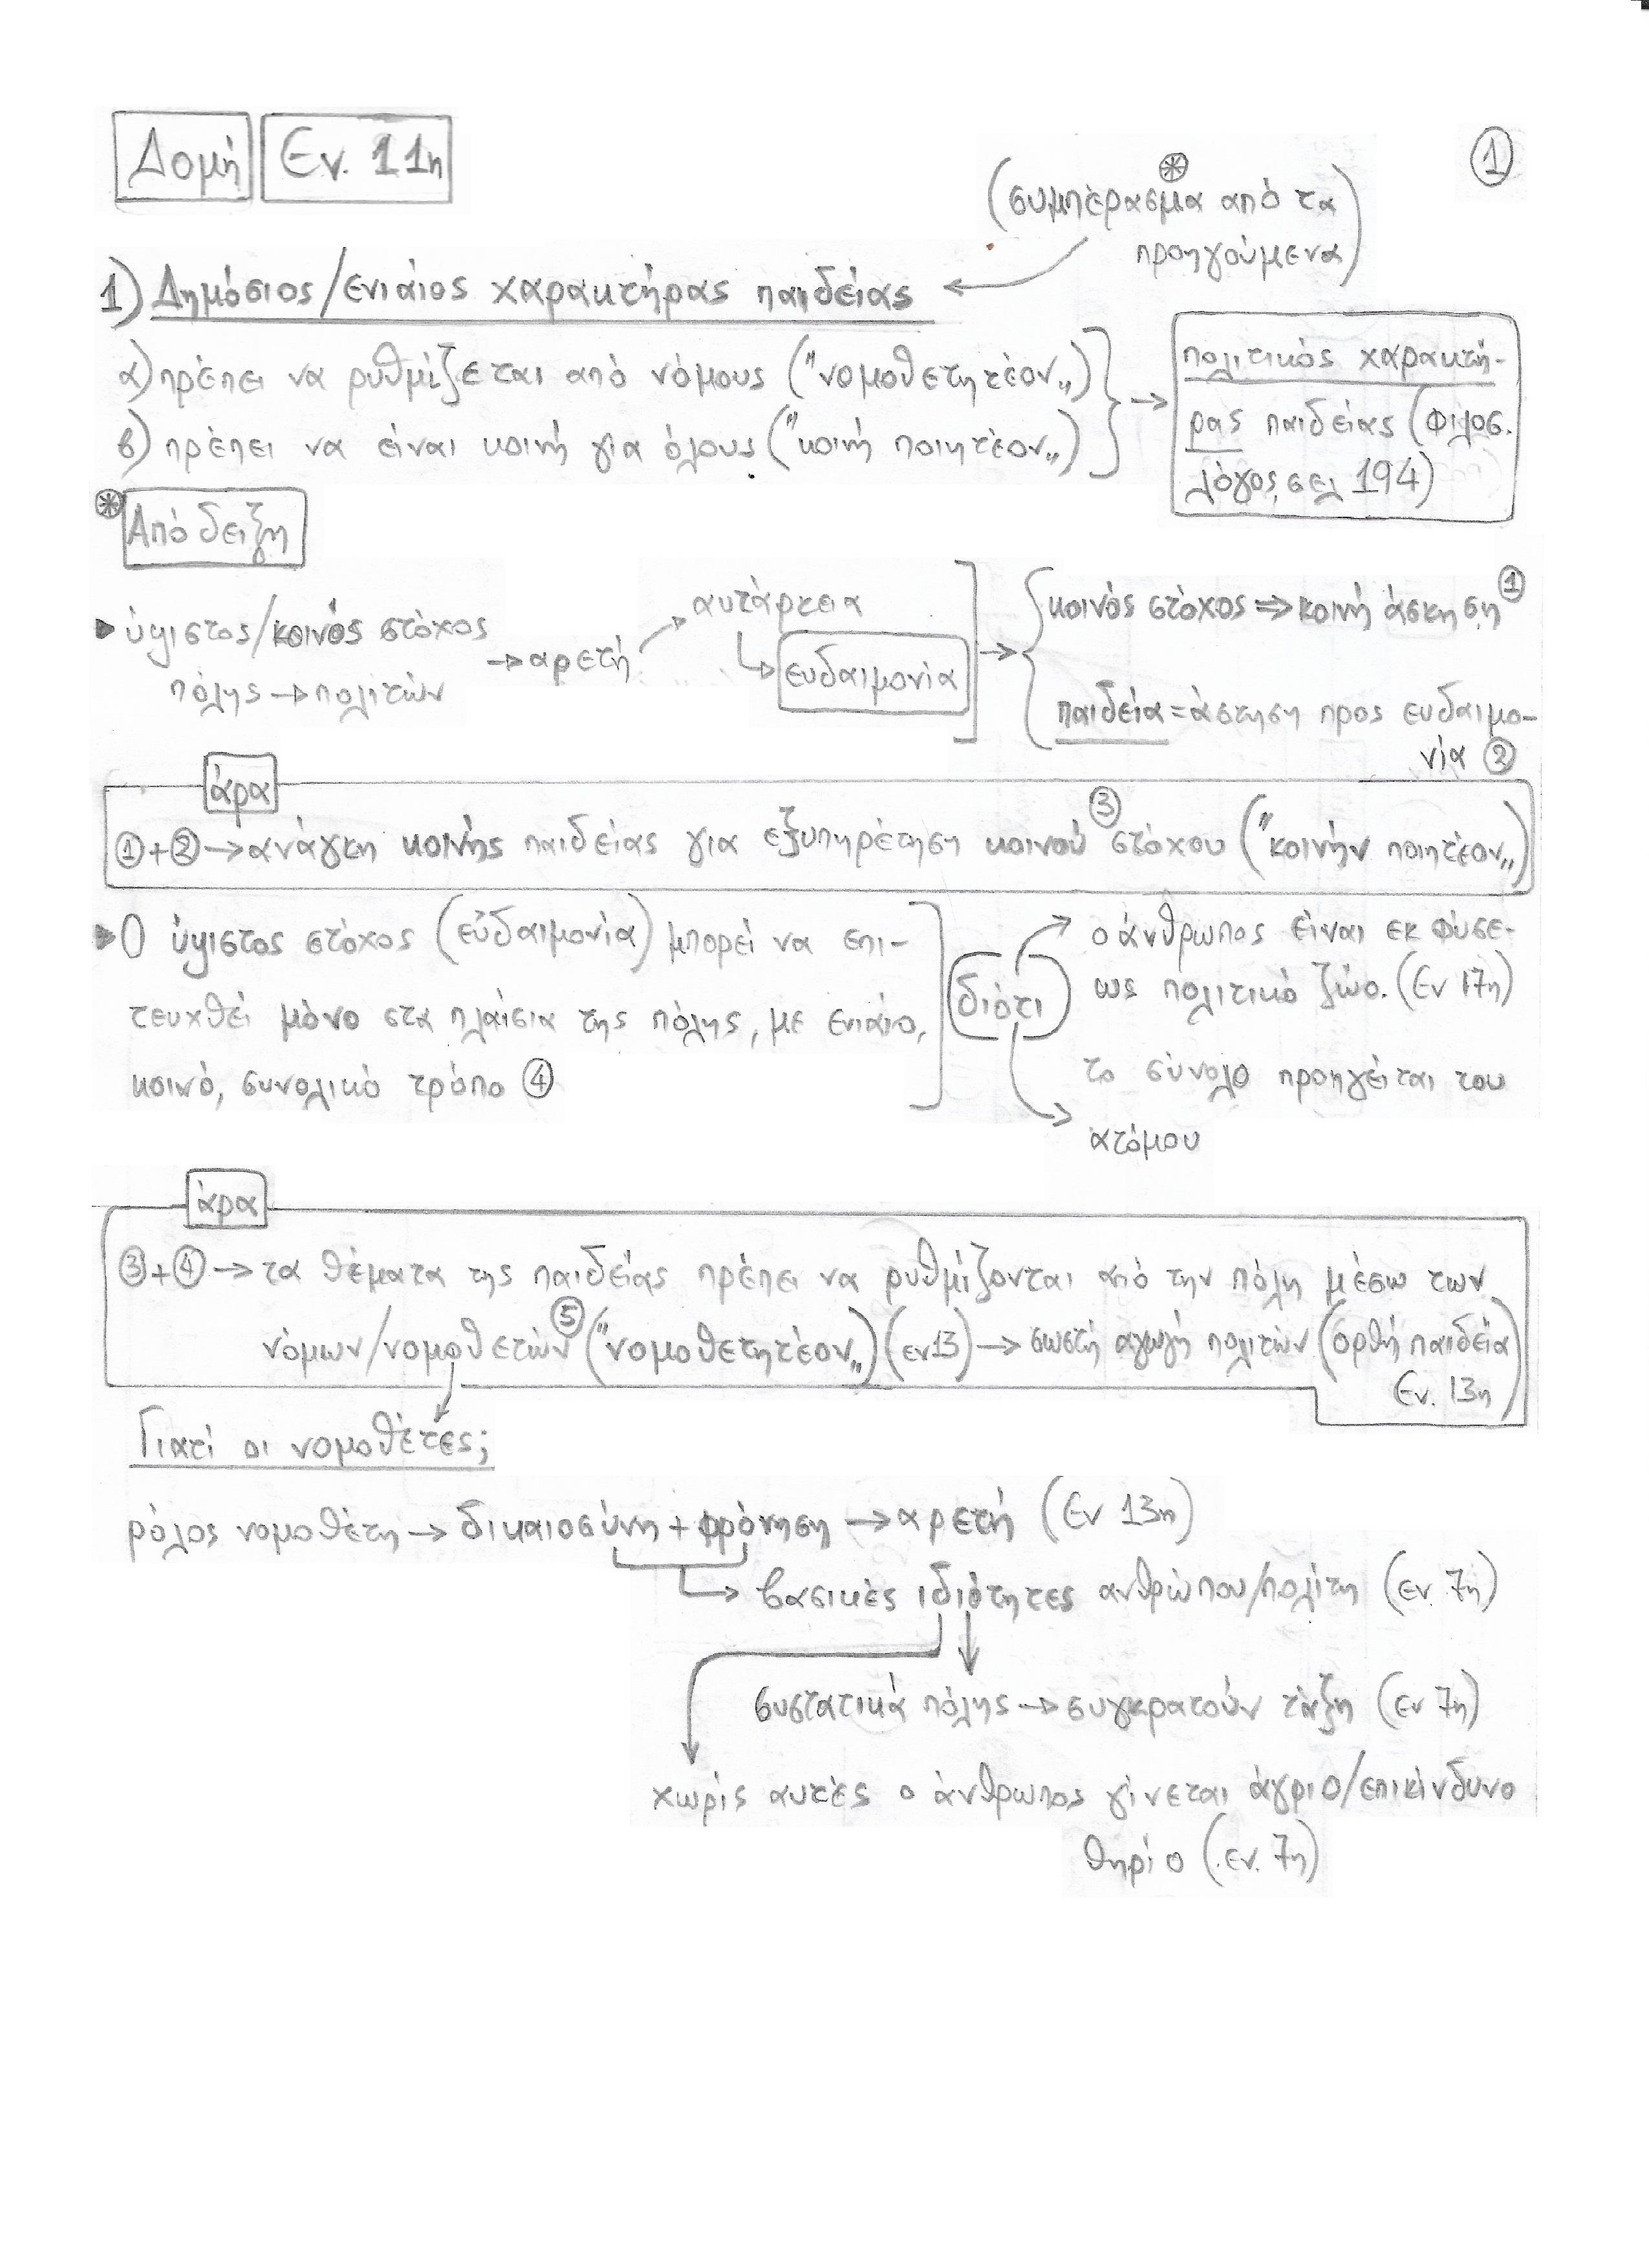 Δομή Εν. 11η
①
(συμπέρασμα από τα
προηγούμενα)
1) Δημόσιος/ενιαίος χαρακτήρας παιδείας
α) πρέπει να ρυθμίζεται από νόμους ("νομοθετητέον„)
β) πρέπει να είναι κοινή για όλους ("κοινή ποιητέον„)
πολιτικός χαρακτή-
ρας παιδείας (Φιλοσ.
λόγος, σελ 194)
Απόδειξη
ύψιστος/κοινός στόχος
πόλης → πολιτών
→ αρετή
αυτάρκεια
ευδαιμονία
κοινός στόχος ⇒ κοινή άσκηση ①
παιδεία = άσκηση προς ευδαιμο-
νία ②
άρα
①+② → ανάγκη κοινής παιδείας για εξυπηρέτηση κοινού ③ στόχου ("κοινήν ποιητέον„)
Ο ύψιστος στόχος (εὐδαιμονία) μπορεί να επι-
τευχθεί μόνο στα πλαίσια της πόλης, με ενιαίο,
κοινό, συνολικό τρόπο ④
διότι
ο άνθρωπος είναι εκ φύσε-
ως πολιτικό ζώο. (Εν 17η)
το σύνολο προηγείται του
ατόμου
άρα
③+④ → τα θέματα της παιδείας πρέπει να ρυθμίζονται από την πόλη μέσω των
νόμων/νομοθετών ⑤ ("νομοθετητέον„) (εν 13) → σωστή αγωγή πολιτών (ορθή παιδεία
Εν. 13η)
Γιατί οι νομοθέτες;
ρόλος νομοθέτη → δικαιοσύνη + φρόνηση → αρετή (Εν 13η)
βασικές ιδιότητες ανθρώπου/πολίτη (εν. 7η)
συστατικά πόλης → συγκρατούν τάξη (εν 7η)
χωρίς αυτές ο άνθρωπος γίνεται άγριο/επικίνδυνο
θηρίο (εν. 7η)